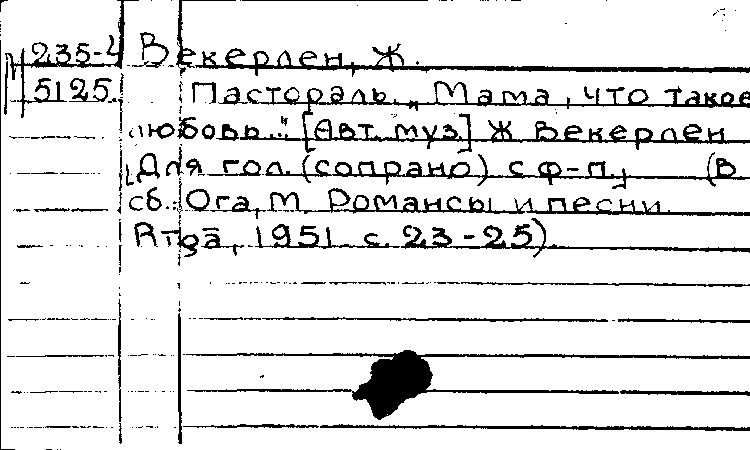 М 235-4 Векерлен, Ж.
5125. Пастораль. „Мама, что такое
любовь." [Авт. муз.] Ж Векерлен
[Для гол. (сопрано) с ф-п.] (В
сб.: Ога, М. Романсы и песни.
1951. с. 23-25).